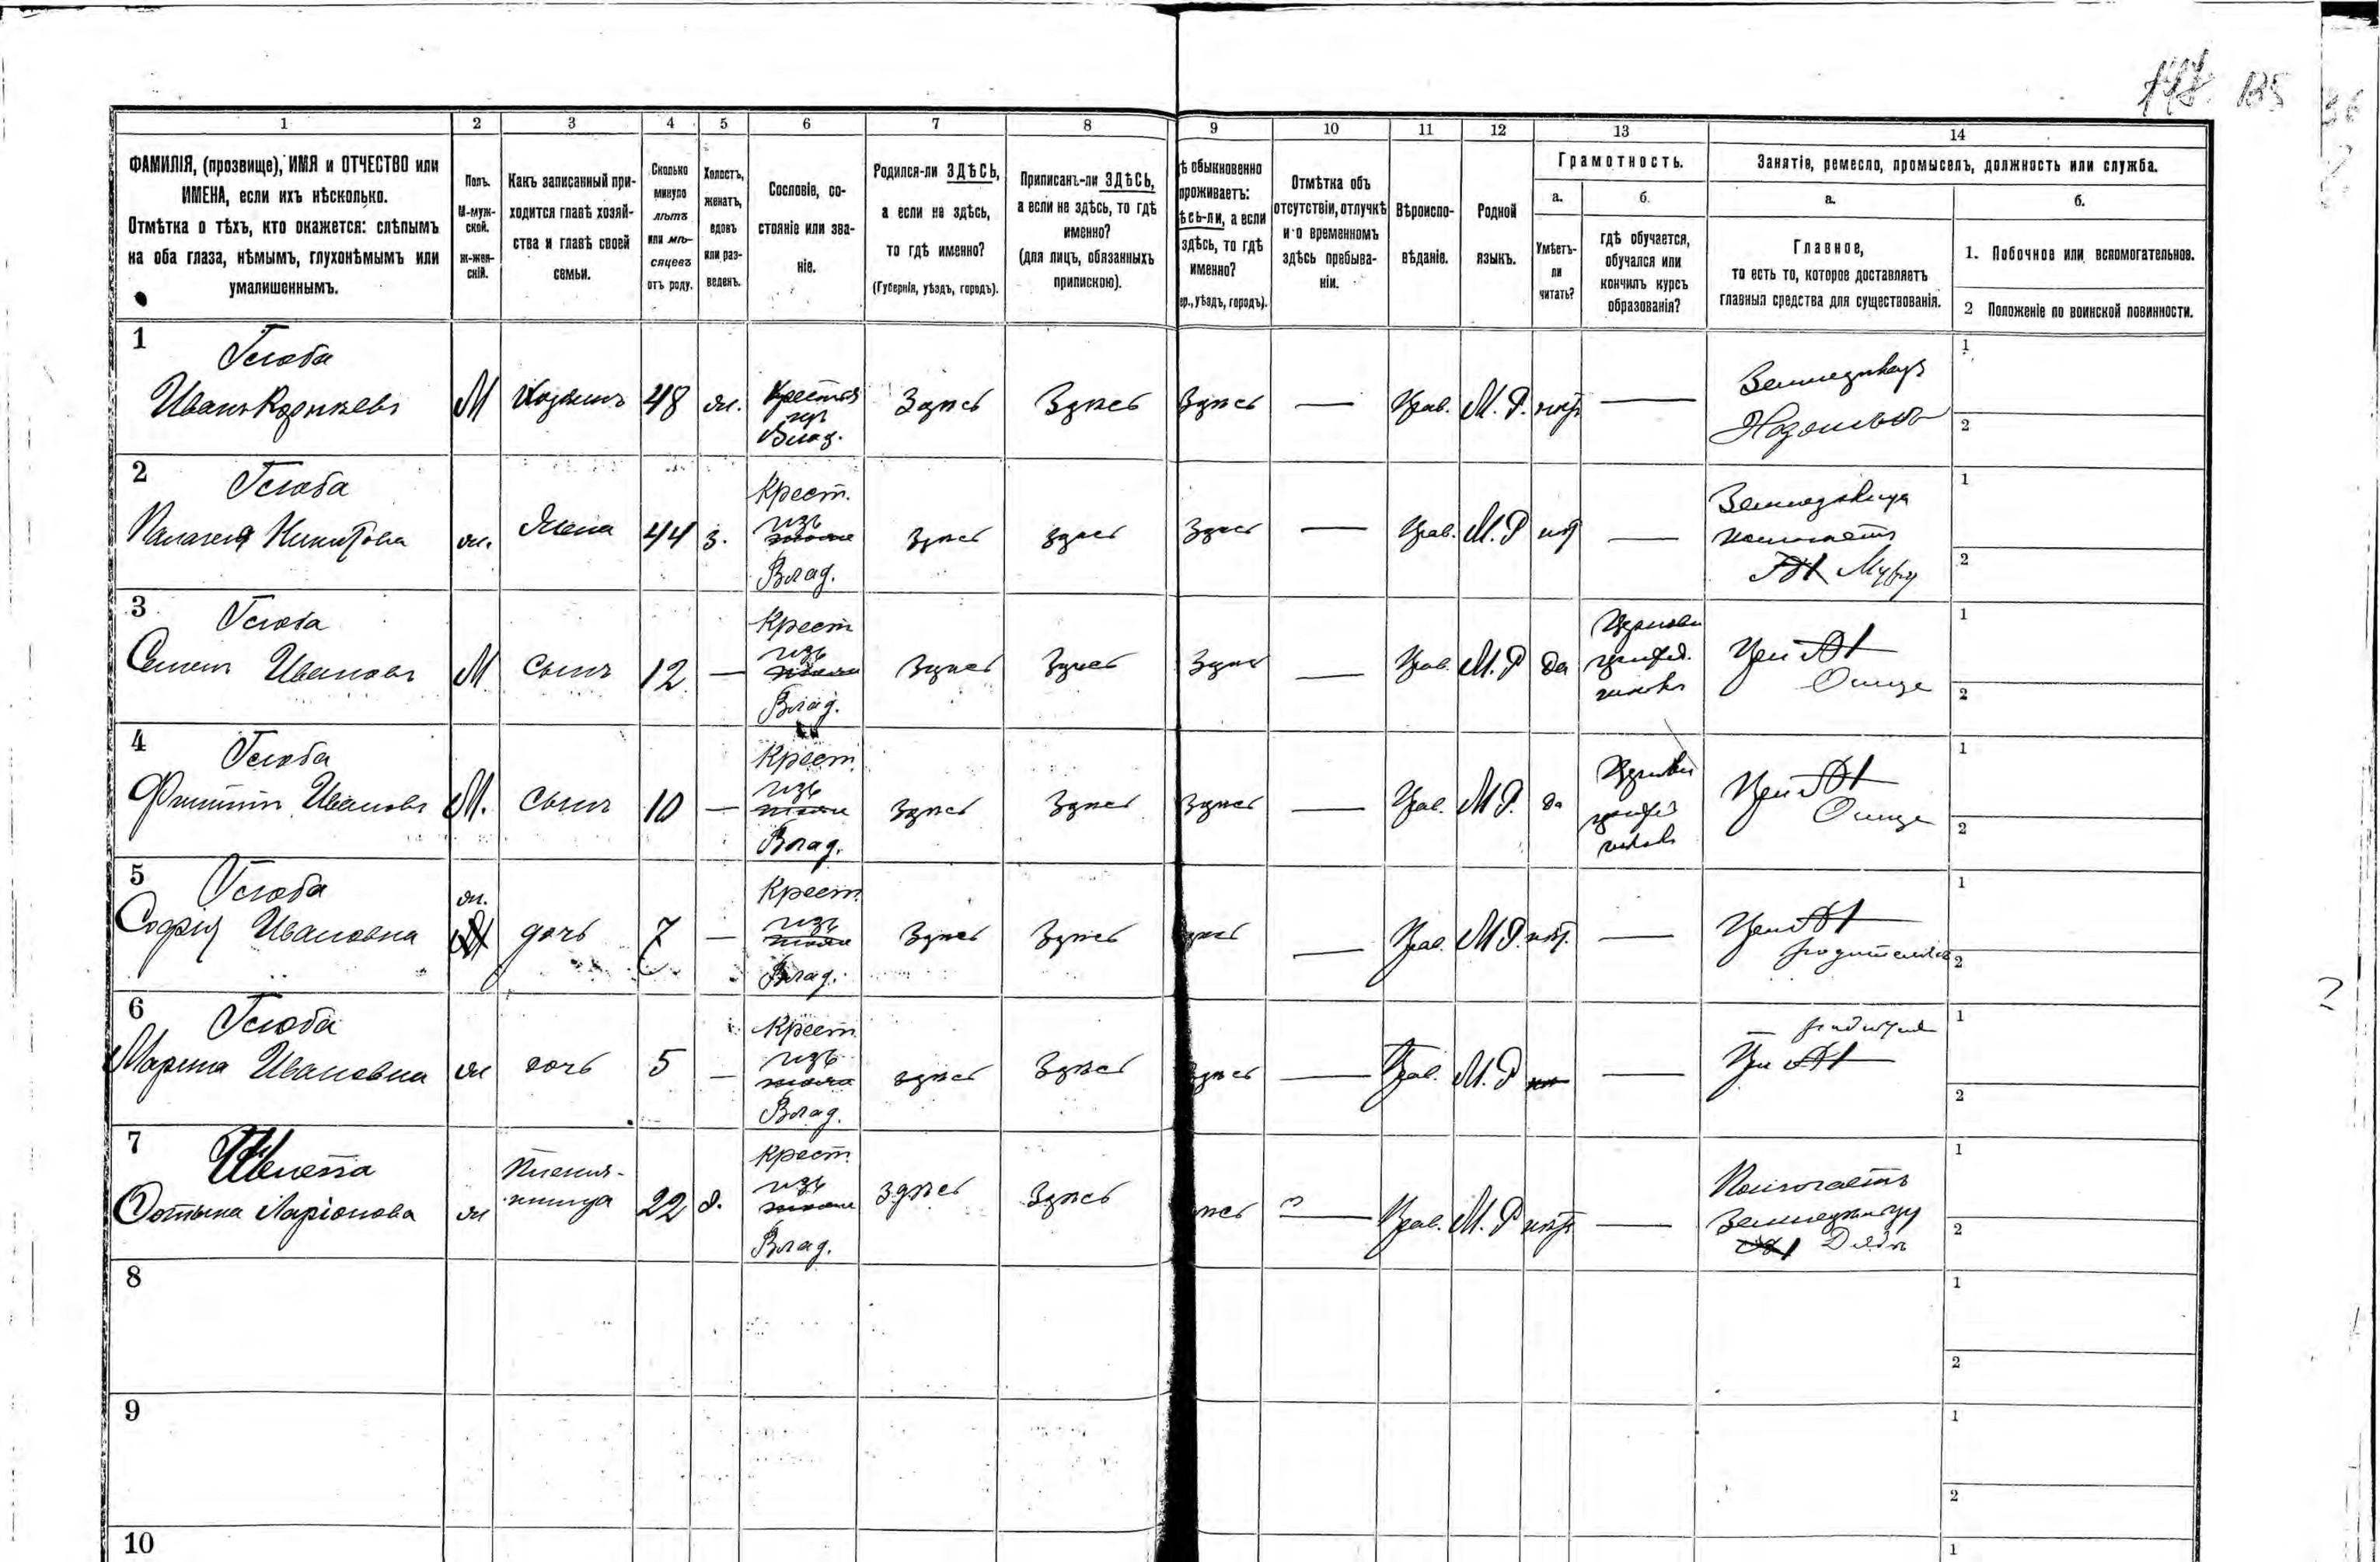 135
1 2 3 4 5 6 7 8 9 10 11 12 13 14
ФАМИЛІЯ, (прозвище), ИМЯ и ОТЧЕСТВО или
ИМЕНА, если ихъ нѣсколько.
Отмѣтка о тѣхъ, кто окажется: слѣпымъ
на оба глаза, нѣмымъ, глухонѣмымъ или
умалишеннымъ.
Полъ.
М-муж-
ской.
Ж-жен-
скій.
Какъ записанный при-
ходится главѣ хозяй-
ства и главѣ своей
семьи.
Сколько
минуло
лѣтъ
или мѣ-
сяцевъ
отъ роду.
Холостъ,
женатъ,
вдовъ
или раз-
веденъ.
Сословіе, со-
стояніе или зва-
ніе.
Родился-ли ЗДѢСЬ,
а если не здѣсь,
то гдѣ именно?
(Губернія, уѣздъ, городъ).
Приписанъ-ли ЗДѢСЬ,
а если не здѣсь, то гдѣ
именно?
(для лицъ, обязанныхъ
припискою).
ѣ обыкновенно
проживаетъ:
ѣсь-ли, а если
здѣсь, то гдѣ
именно?
ер., уѣздъ, городъ).
Отмѣтка объ
отсутствіи, отлучкѣ
и о временномъ
здѣсь пребыва-
ніи.
Вѣроиспо-
вѣданіе.
Родной
языкъ.
Грамотность.
а.
Умѣетъ-
ли
читать?
б.
гдѣ обучается,
обучался или
кончилъ курсъ
образованія?
Занятіе, ремесло, промыселъ, должность или служба.
а.
Главное,
то есть то, которое доставляетъ
главныя средства для существованія.
б.
1. Побочное или вспомогательное.
2 Положеніе по воинской повинности.
1
Глоба
Иванъ
М Хозяинъ 48 ж. Крестья
изъ
Влад.
Здѣсь Здѣсь Здѣсь — Прав. М. Р. нѣтъ —
1
2
2
Глоба
Палагея Никитова
ж. Жена 44 з. Крест.
изъ
Влад.
Здѣсь здѣсь Здѣсь — Прав. М. Р нѣт —
Мужу
1
2
3
Глоба
Семенъ Ивановъ
М Сынъ 12 — Крест
изъ
Влад.
Здѣсь Здѣсь Здѣсь — Прав. М. Р да
При
Отце
1
2
4
Глоба
Филиппъ Ивановъ
М. Сынъ 10 — Крест.
изъ
Влад.
Здѣсь Здѣсь Здѣсь — Прав. М Р. да
При
Отце
1
2
5
Глоба
Софія Ивановна
ж.
дочь 7 — Крест.
изъ
Влад.
Здѣсь Здѣсь здѣсь — Прав. М Р. нѣт. —
При
1
2
6
Глоба
Марина Ивановна
ж дочь 5 — Крест.
изъ
Влад.
здѣсь Здѣсь здѣсь — Прав. М. Р —
При
1
2
7
Фотына Ларіонова
ж Племян-
ница
22 д. Крест.
изъ
Влад.
здѣсь Здѣсь — Прав. М. Р нѣтъ —
Помогаетъ
Дядѣ
1
2
8
1
2
9
1
2
10
1